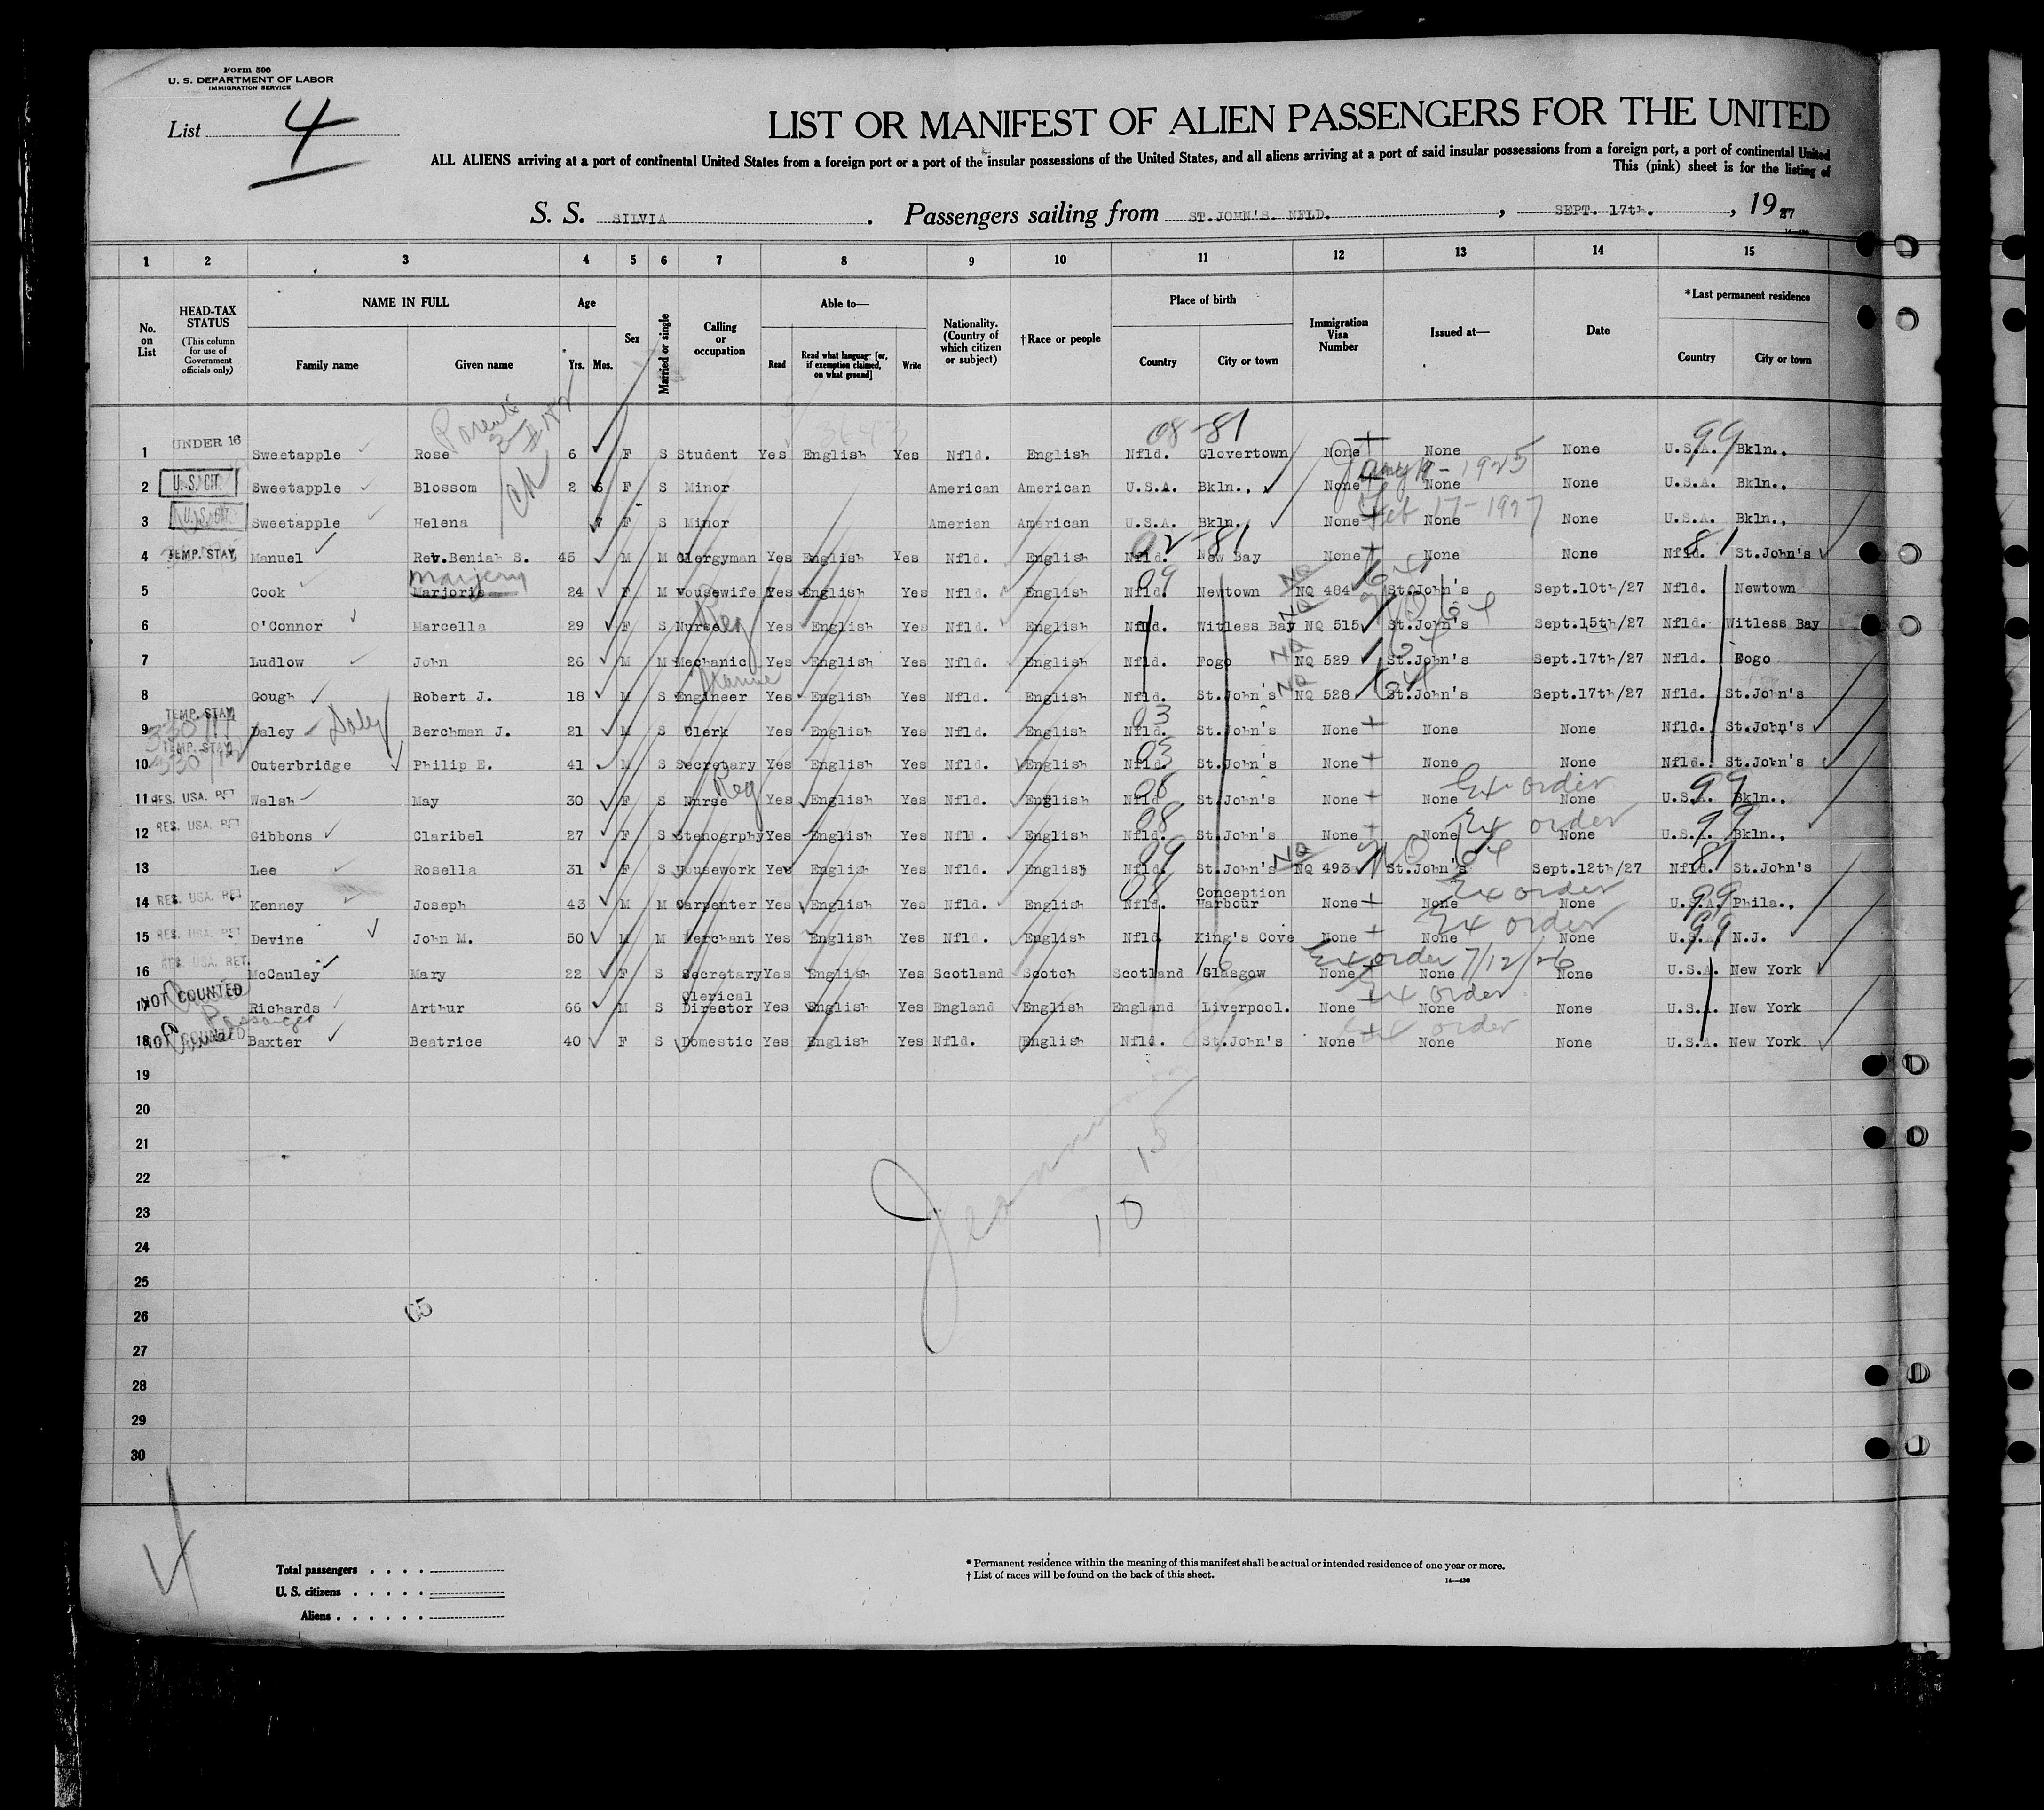 Form 500
U. S. DEPARTMENT OF LABOR
IMMIGRATION SERVICE
List 4
LIST OR MANIFEST OF ALIEN PASSENGERS FOR THE UNITED
ALL ALIENS arriving at a port of continental United States from a foreign port or a port of the insular possessions of the United States, and all aliens arriving at a port of said insular possessions from a foreign port, a port of continental United
This (pink) sheet is for the listing of
S. S. SILVIA. Passengers sailing from ST.JOHN'S. NFLD., SEPT. 17th., 1927
1 2 3 4 5 6 7 8 9 10 11 12 13 14 15
No. on List
HEAD-TAX STATUS (This column for use of Government officials only)
NAME IN FULL Family name Given name
Age Yrs. Mos.
Sex
Married or single
Calling or occupation
Able to— Read Read what language [or, if exemption claimed, on what ground] Write
Nationality. (Country of which citizen or subject)
†Race or people
Place of birth Country City or town
Immigration Visa Number
Issued at—
Date
*Last permanent residence Country City or town
Parents
08-81 99
1 UNDER 16 Sweetapple Rose 6 F S Student Yes English Yes Nfld. English Nfld. Glovertown None None None U.S.A. Bkln.,
- 1925
2 U.S. CIT. Sweetapple Blossom 2 6 F S Minor American American U.S.A. Bkln., None None None U.S.A. Bkln.,
Feb 17-1927
3 U.S. CIT. Sweetapple Helena 7 F S Minor Amerian American U.S.A. Bkln., None None None U.S.A. Bkln.,
02-81 81
4 TEMP. STAY. Manuel Rev.Beniah S. 45 M M Clergyman Yes English Yes Nfld. English Nfld. New Bay None None None Nfld. St.John's
Marjery 09 NQ
5 Cook Marjorie 24 F M Housewife Yes English Yes Nfld. English Nfld. Newtown NQ 484 St.John's Sept.10th/27 Nfld. Newtown
Reg NQ
6 O'Connor Marcella 29 F S Nurse Yes English Yes Nfld. English Nfld. Witless Bay NQ 515 St.John's Sept.15th/27 Nfld. Witless Bay
NQ
7 Ludlow John 26 M M Mechanic Yes English Yes Nfld. English Nfld. Fogo NQ 529 St.John's Sept.17th/27 Nfld. Fogo
NQ
8 Gough Robert J. 18 M S Engineer Yes English Yes Nfld. English Nfld. St.John's NQ 528 St.John's Sept.17th/27 Nfld. St.John's
TEMP. STAY. Daley 03
9 Daley Berchman J. 21 M S Clerk Yes English Yes Nfld. English Nfld. St.John's None None None Nfld. St.John's
TEMP. STAY. 03
10 Outerbridge Philip E. 41 M S Secretary Yes English Yes Nfld. English Nfld. St.John's None None None Nfld. St.John's
Reg 08 Ex order 99
11 RES. USA. RET Walsh May 30 F S Nurse Yes English Yes Nfld. English Nfld. St.John's None None None U.S.A. Bkln.,
08 Ex order 99
12 RES. USA. RET Gibbons Claribel 27 F S Stenogrphy Yes English Yes Nfld. English Nfld. St.John's None None None U.S.A. Bkln.,
09 NQ 81
13 Lee Rosella 31 F S Housework Yes English Yes Nfld. English Nfld. St.John's NQ 493 St.John's Sept.12th/27 Nfld. St.John's
Ex order 99
14 RES. USA. RET Kenney Joseph 43 M M Carpenter Yes English Yes Nfld. English Nfld. Conception Harbour None None None U.S.A. Phila.,
Ex order 99
15 RES. USA. RET Devine John M. 50 M M Merchant Yes English Yes Nfld. English Nfld. King's Cove None None None U.S.A. N.J.
Ex order 7/12/26
16 RES. USA. RET. McCauley Mary 22 F S Secretary Yes English Yes Scotland Scotch Scotland Glasgow None None None U.S.A. New York
Ex order
17 NOT COUNTED Richards Arthur 66 M S Clerical Director Yes English Yes England English England Liverpool. None None None U.S.A. New York
Passenger Ex order
18 NOT COUNTED Baxter Beatrice 40 F S Domestic Yes English Yes Nfld. English Nfld. St.John's None None None U.S.A. New York
19
20
21
22
23
24
25
26
27
28
29
30
Total passengers
U. S. citizens
Aliens
* Permanent residence within the meaning of this manifest shall be actual or intended residence of one year or more.
† List of races will be found on the back of this sheet.
14—430